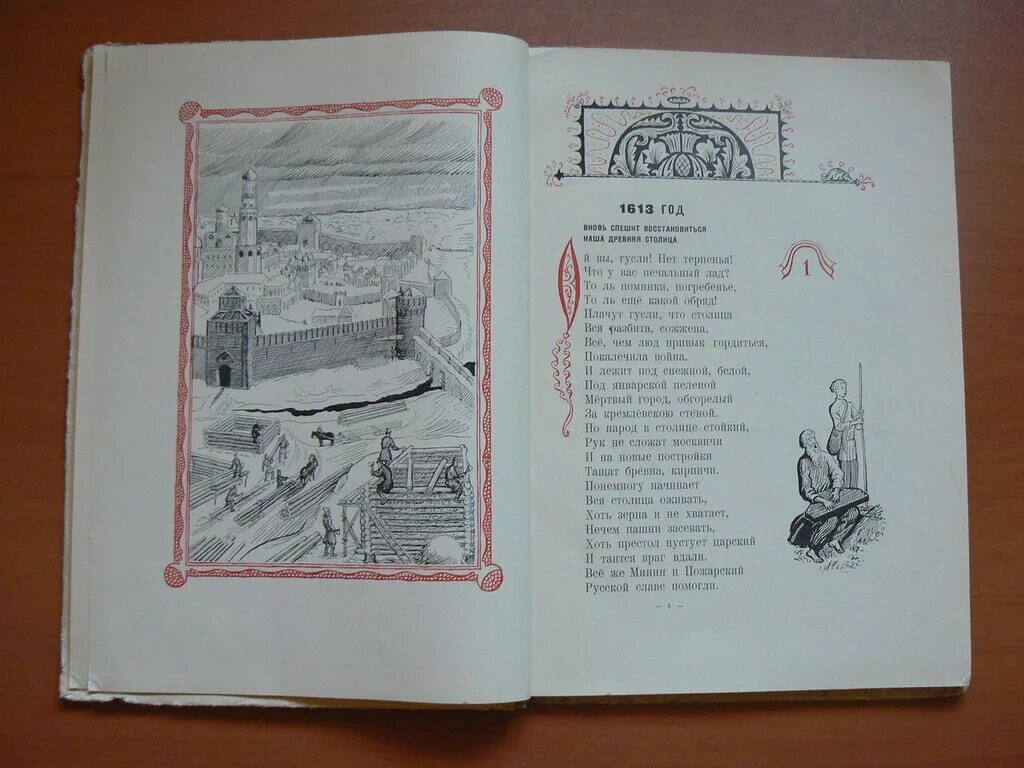 1613 ГОД
ВНОВЬ СПЕШИТ ВОССТАНОВИТЬСЯ
НАША ДРЕВНЯЯ СТОЛИЦА
1
Ой вы, гусли! Нет терпенья!
Что у вас печальный лад?
То ль поминки, погребенье,
То ль ещё какой обряд!
Плачут гусли, что столица
Вся разбита, сожжена,
Всё, чем люд привык гордиться,
Покалечила война.
И лежит под снежной, белой,
Под январской пеленой
Мёртвый город, обгорелый
За кремлёвскою стеной.
Но народ в столице стойкий,
Рук не сложат москвичи
И на новые постройки
Тащат брёвна, кирпичи.
Понемногу начинает
Вся столица оживать,
Хоть зерна и не хватает,
Нечем пашни засевать,
Хоть престол пустует царский
И таится враг вдали.
Всё же Минин и Пожарский
Русской славе помогли.
— 5 —